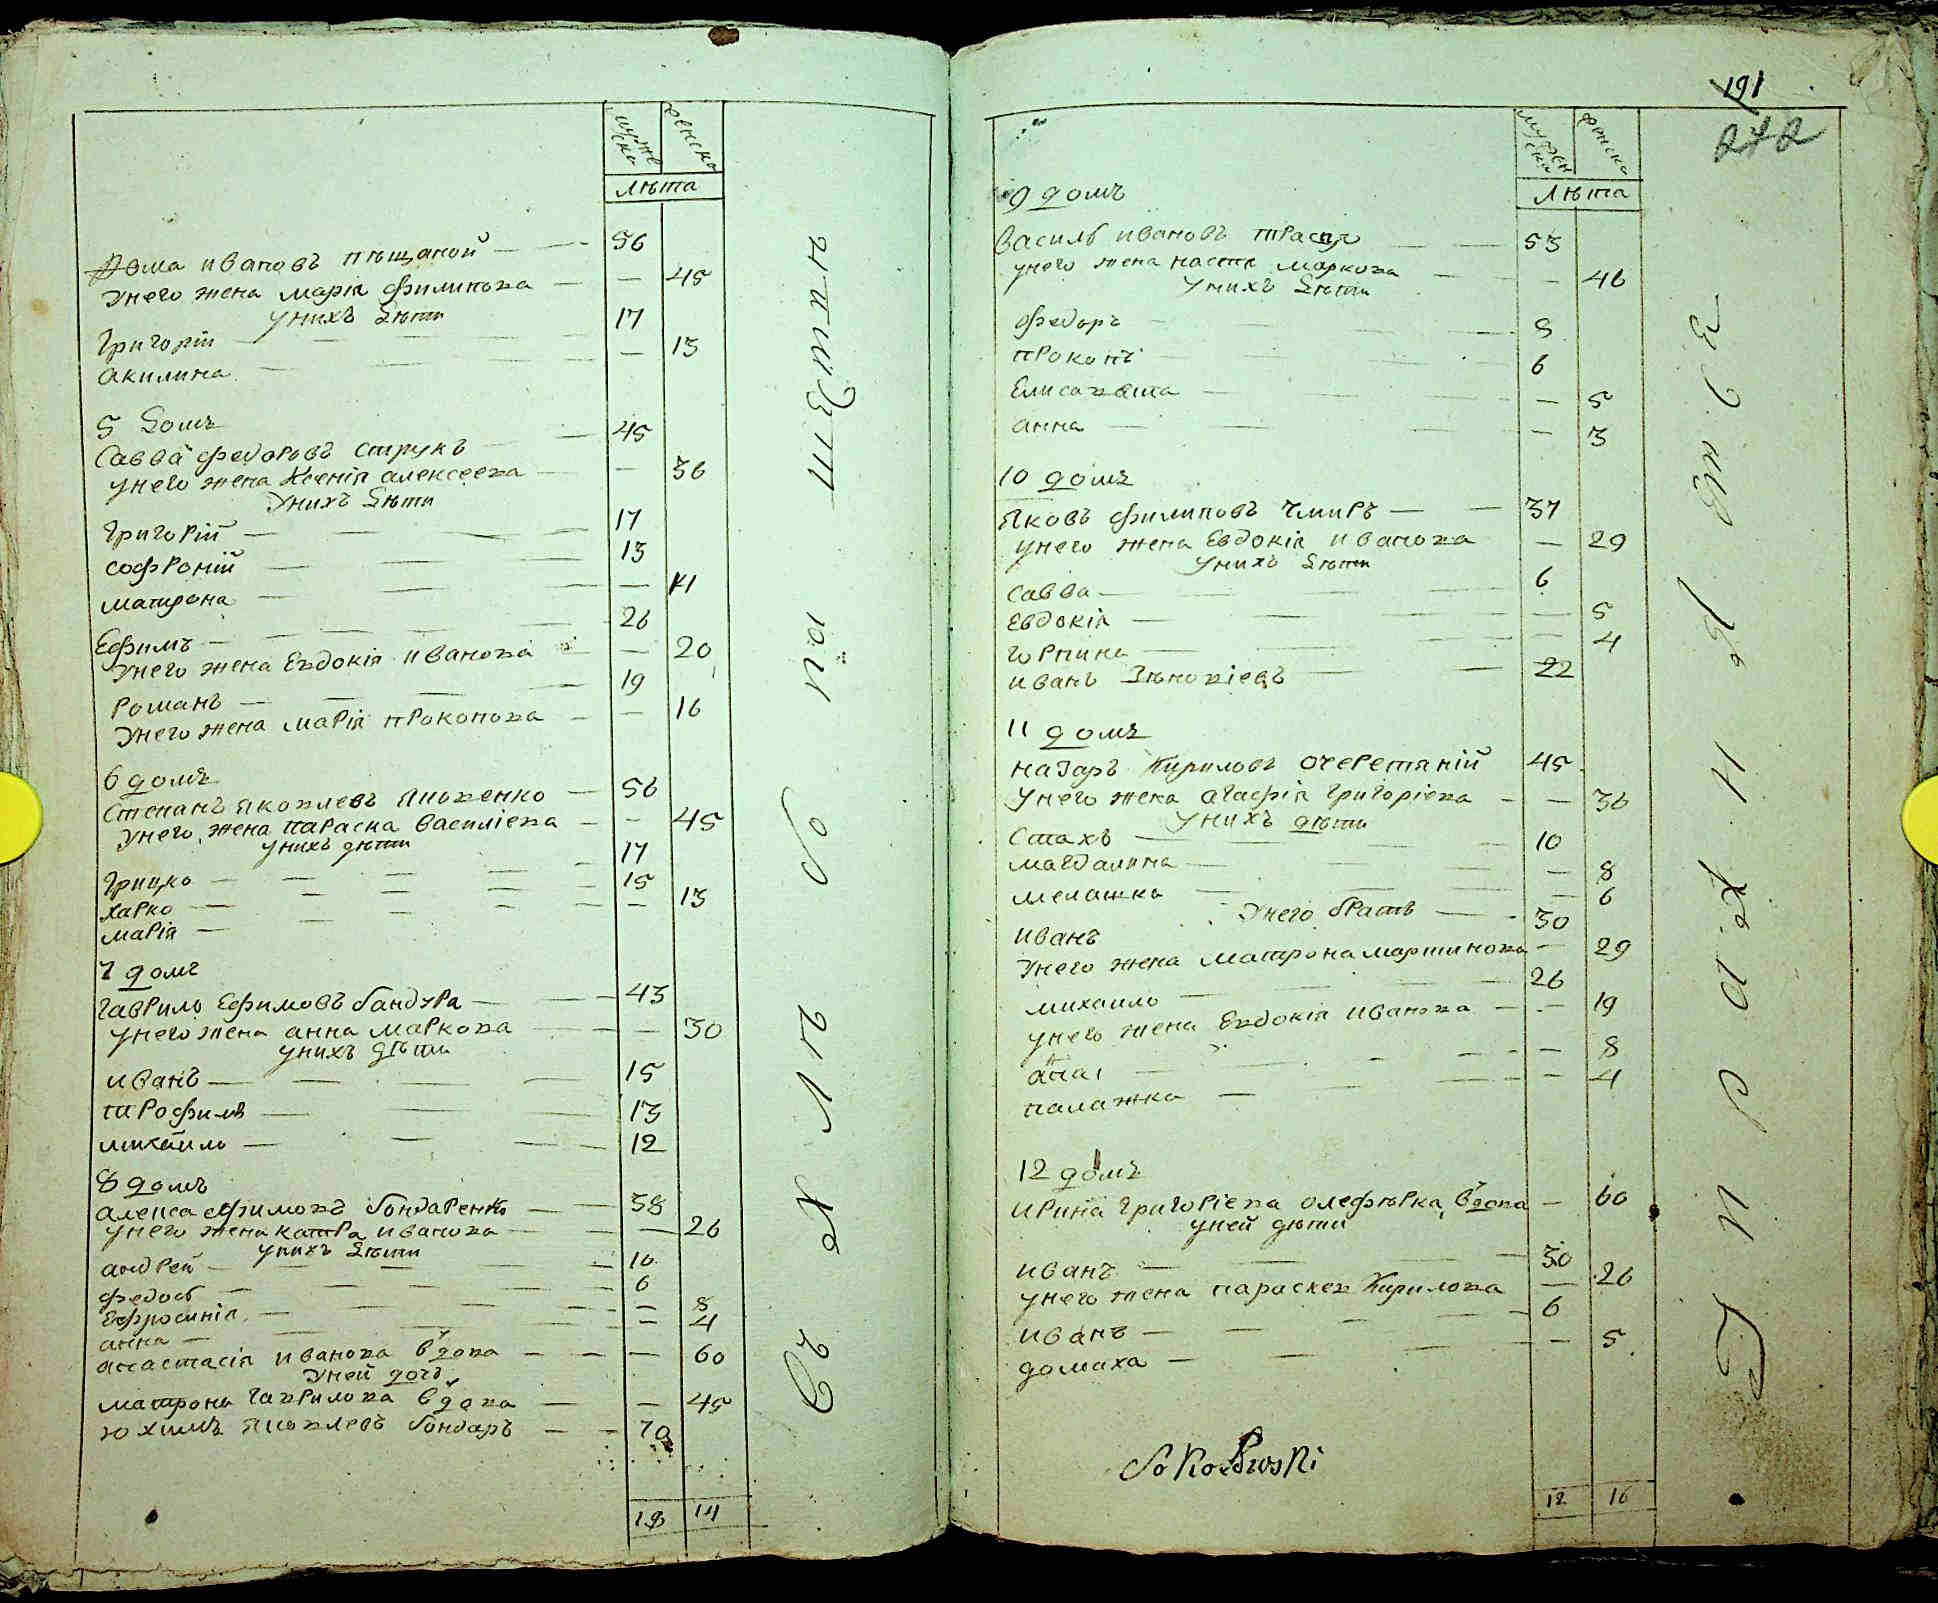 мужеска
женска
лѣта
Фома ивановъ пѣщаной — 56
унего жена марія филипова — 45
унихъ дѣти
григорій — 17
акилина — 13
5 домъ
Савва федоровъ струкъ — 45
унего жена Ксенія алексеева — 36
унихъ дѣти
григорій — 17
софроній — 13
матрона — 11
Ефимъ — 26
унего жена Евдокія иванова — 20
романъ — 19
унего жена марія прокопова — 16
6 домъ
Степанъ яковлевъ — 56
унего жена параска василіева — 45
унихъ дѣти
грицко — 17
харко — 15
марія — 13
7 домъ
гаврило Ефимовъ бандура — 43
унего жена анна маркова — 30
унихъ дѣти
иванъ — 15
трофимъ — 13
михайло — 12
8 домъ
алекса ефимовъ бондаренко — 38
унего жена катря иванова — 26
унихъ дѣти
андрей — 10
федось — 6
Ефросинія — 8
анна — 4
анастасія иванова вдова — 60
уней дочь
матрона гаврилова вдова — 45
юхимъ яковлевъ бондаръ — 70
18 14
191
272
мужеска
женска
лѣта
9 домъ
василь ивановъ — 53
унего жена настя маркова — 46
унихъ дѣти
федоръ — 8
прокопъ — 6
Елисавета — 5
анна — 3
10 домъ
яковъ филиповъ чмиръ — 37
унего жена Евдокія иванова — 29
унихъ дѣти
савва — 6
Евдокія — 5
горпина — 4
иванъ — 22
11 домъ
назаръ Кириловъ очеретяній — 45
унего жена агафія григоріева — 36
унихъ дѣти
Стахъ — 10
магдалина — 8
мелашка — 6
унего братъ
иванъ — 30
унего жена матрона мартинова — 29
михайло — 26
унего жена Евдокія иванова — 19
8
палажка — 4
12 домъ
ирина григоріева олефѣрка вдова — 60
уней дѣти
иванъ — 30
унего жена параскев Кирилова — 26
иванъ — 6
домаха — 5
Sokołowski
12 16